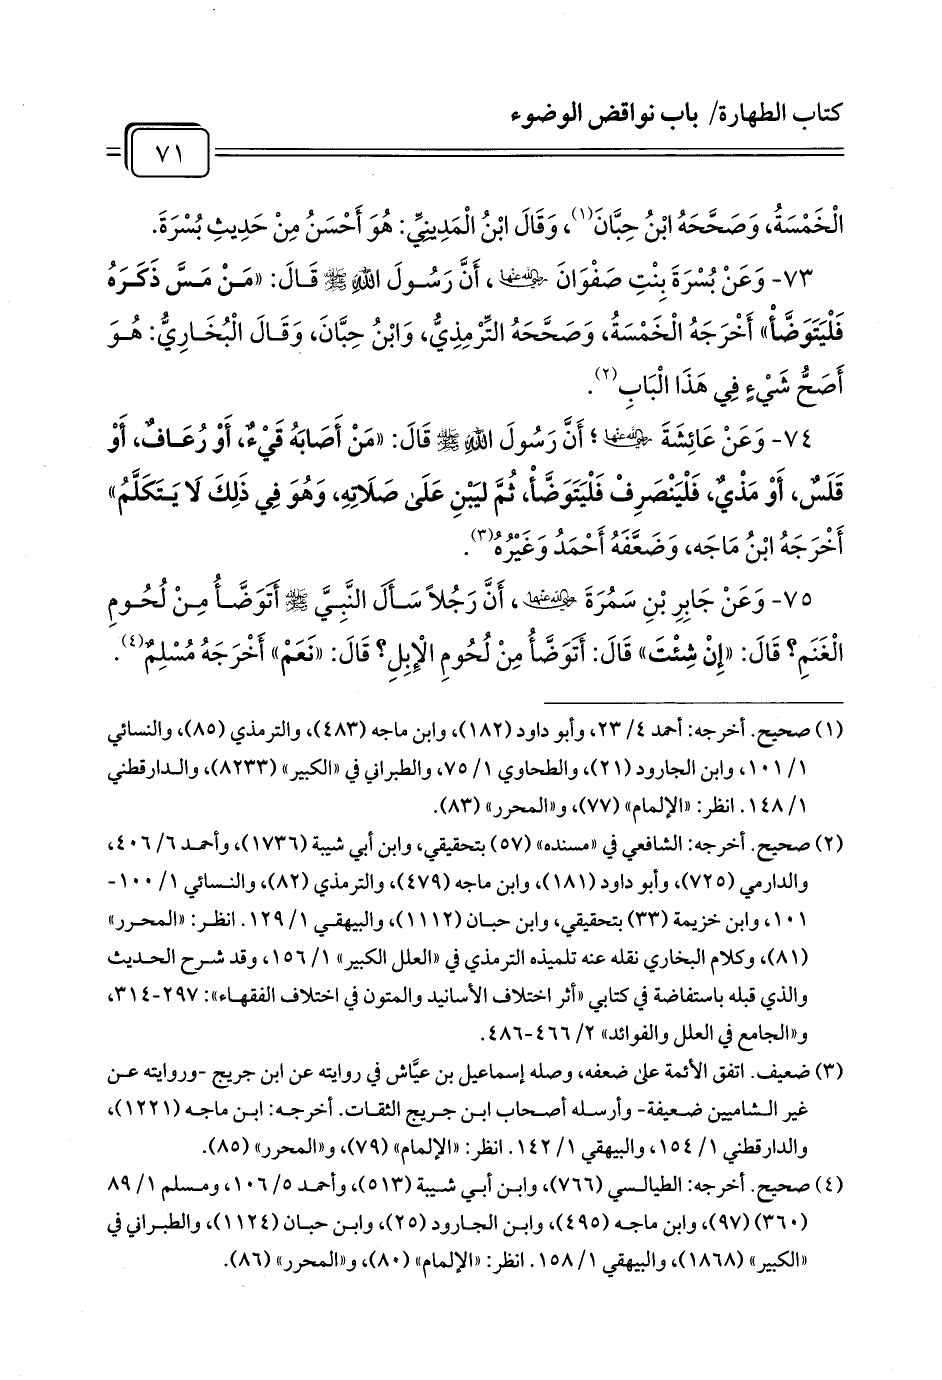 كتاب الطهارة/ باب نواقض الوضوء
٧١
الْخَمْسَةُ، وَصَحَّحَهُ ابْنُ حِبَّانَ(١)، وَقَالَ ابْنُ الْمَدِينِيِّ: هُوَ أَحْسَنُ مِنْ حَدِيثِ بُسْرَةَ.
٧٣- وَعَنْ بُسْرَةَ بِنْتِ صَفْوَانَ رضي الله عنها، أَنَّ رَسُولَ اللهِ ﷺ قَالَ: «مَنْ مَسَّ ذَكَرَهُ
فَلْيَتَوَضَّأْ» أَخْرَجَهُ الْخَمْسَةُ، وَصَحَّحَهُ التِّرْمِذِيُّ، وَابْنُ حِبَّانَ، وَقَالَ الْبُخَارِيُّ: هُوَ
أَصَحُّ شَيْءٍ فِي هَذَا الْبَابِ(٢).
٧٤- وَعَنْ عَائِشَةَ رضي الله عنها؛ أَنَّ رَسُولَ اللهِ ﷺ قَالَ: «مَنْ أَصَابَهُ قَيْءٌ، أَوْ رُعَافٌ، أَوْ
قَلَسٌ، أَوْ مَذْيٌ، فَلْيَنْصَرِفْ فَلْيَتَوَضَّأْ، ثُمَّ لِيَبْنِ عَلَى صَلَاتِهِ، وَهُوَ فِي ذَلِكَ لَا يَتَكَلَّمُ»
أَخْرَجَهُ ابْنُ مَاجَه، وَضَعَّفَهُ أَحْمَدُ وَغَيْرُهُ(٣).
٧٥- وَعَنْ جَابِرِ بْنِ سَمُرَةَ رضي الله عنهما، أَنَّ رَجُلاً سَأَلَ النَّبِيَّ ﷺ أَتَوَضَّأُ مِنْ لُحُومِ
الْغَنَمِ؟ قَالَ: «إِنْ شِئْتَ» قَالَ: أَتَوَضَّأُ مِنْ لُحُومِ الْإِبِلِ؟ قَالَ: «نَعَمْ» أَخْرَجَهُ مُسْلِمٌ(٤).
(١) صحيح. أخرجه: أحمد ٤/ ٢٣، وأبو داود (١٨٢)، وابن ماجه (٤٨٣)، والترمذي (٨٥)، والنسائي
١/ ١٠١، وابن الجارود (٢١)، والطحاوي ١/ ٧٥، والطبراني في «الكبير» (٨٢٣٣)، والدارقطني
١/ ١٤٨. انظر: «الإلمام» (٧٧)، و«المحرر» (٨٣).
(٢) صحيح. أخرجه: الشافعي في «مسنده» (٥٧) بتحقيقي، وابن أبي شيبة (١٧٣٦)، وأحمد ٦/ ٤٠٦،
والدارمي (٧٢٥)، وأبو داود (١٨١)، وابن ماجه (٤٧٩)، والترمذي (٨٢)، والنسائي ١/ ١٠٠-
١٠١، وابن خزيمة (٣٣) بتحقيقي، وابن حبان (١١١٢)، والبيهقي ١/ ١٢٩. انظر: «المحرر»
(٨١)، وكلام البخاري نقله عنه تلميذه الترمذي في «العلل الكبير» ١/ ١٥٦، وقد شرح الحديث
والذي قبله باستفاضة في كتابي «أثر اختلاف الأسانيد والمتون في اختلاف الفقهاء»: ٢٩٧-٣١٤،
و«الجامع في العلل والفوائد» ٢/ ٤٦٦-٤٨٦.
(٣) ضعيف. اتفق الأئمة على ضعفه، وصله إسماعيل بن عيَّاش في روايته عن ابن جريج -وروايته عن
غير الشاميين ضعيفة- وأرسله أصحاب ابن جريج الثقات. أخرجه: ابن ماجه (١٢٢١)،
والدارقطني ١/ ١٥٤، والبيهقي ١/ ١٤٢. انظر: «الإلمام» (٧٩)، و«المحرر» (٨٥).
(٤) صحيح. أخرجه: الطيالسي (٧٦٦)، وابن أبي شيبة (٥١٣)، وأحمد ٥/ ١٠٦، ومسلم ١/ ٨٩
(٣٦٠) (٩٧)، وابن ماجه (٤٩٥)، وابن الجارود (٢٥)، وابن حبان (١١٢٤)، والطبراني في
«الكبير» (١٨٦٨)، والبيهقي ١/ ١٥٨. انظر: «الإلمام» (٨٠)، و«المحرر» (٨٦).